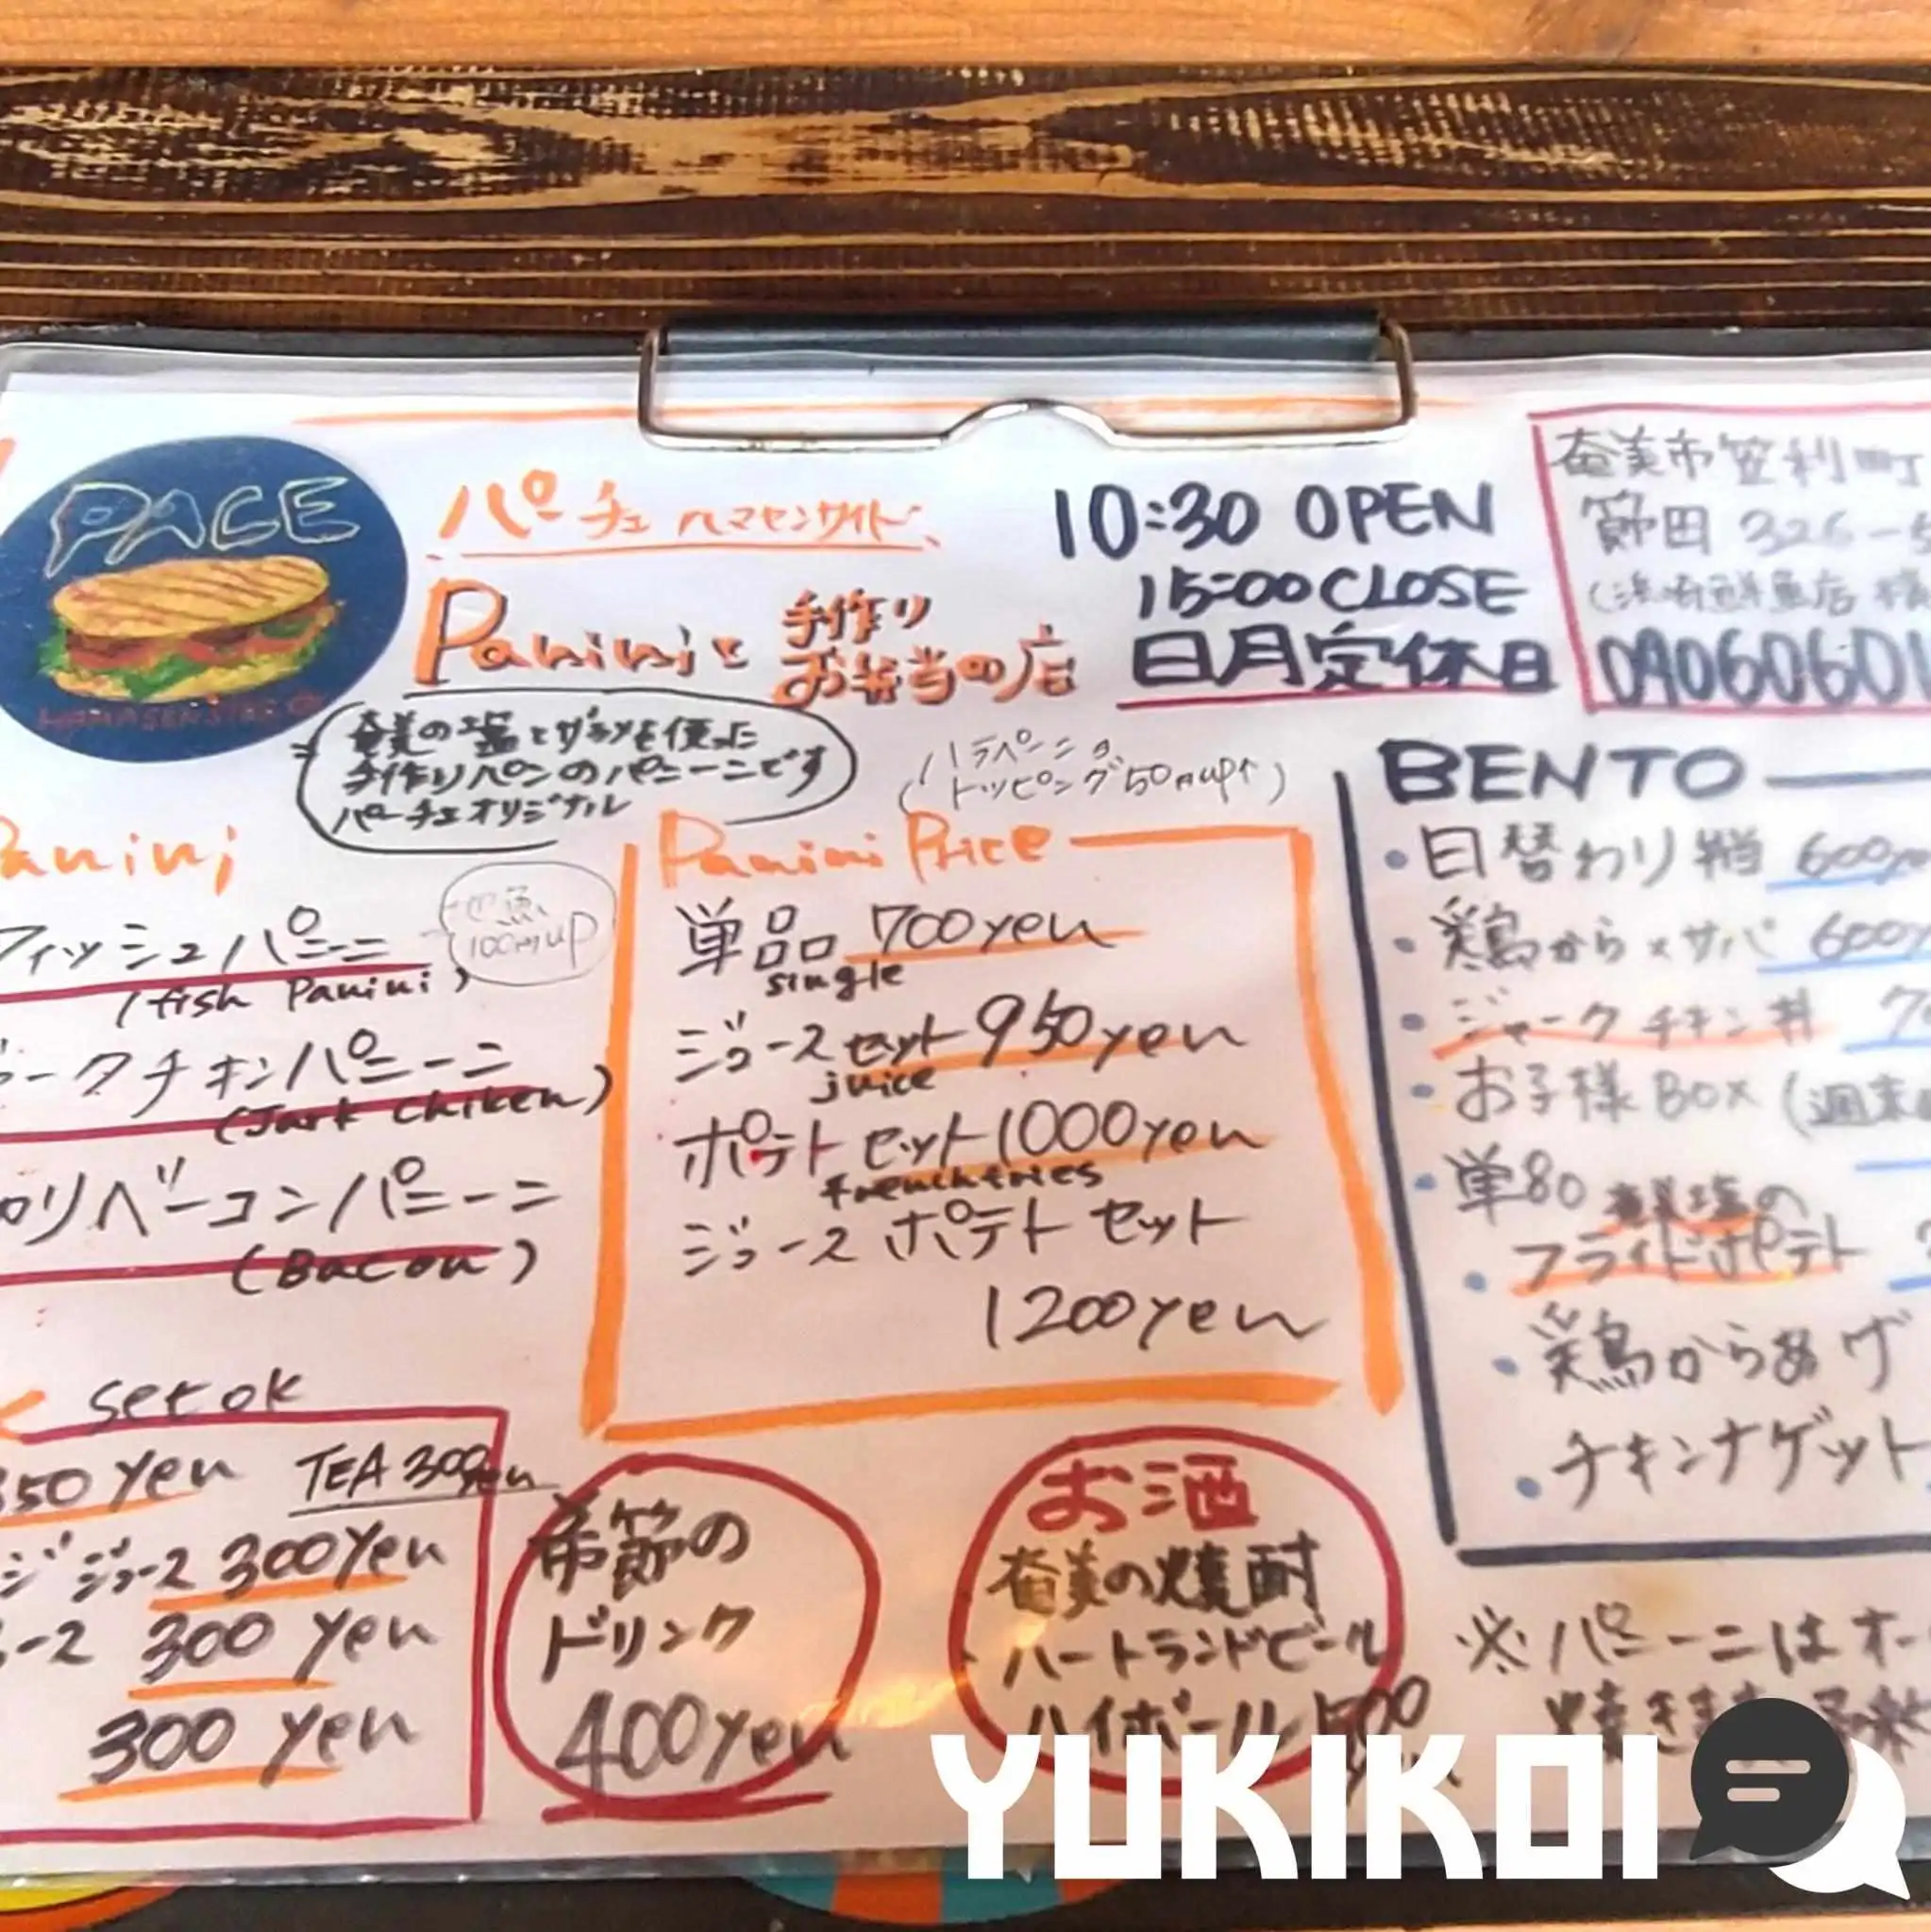 PACE
HAMASENSIDE
パーチェ ハマセンサイド
Paniniと 手作り
お弁当の店
10:30 OPEN
15:00 CLOSE
日月定休日
奄美市笠利町
節田 326-5
0906060
奄美の塩とザラメを使った
手作りパンのパニーニです
パーチェオリジナル
ハラペーニョ
トッピング50円up↑
Panini
フィッシュパニーニ
(fish Panini)
地魚
100円up
ークチキンパニーニ
(Jark Chiken)
ロリベーコンパニーニ
(Bacon)
Panini Price
単品 700yen
single
ジュースセット 950yen
juice
ポテトセット 1000yen
frenchfries
ジュースポテトセット
1200yen
BENTO
・日替わり弁当 600
・鶏からxサバ 600
・ジャークチキン丼
・お子様BOX (週末
・単品 奄美塩の
・フライドポテト
・鶏からあげ
・チキンナゲット
set ok
350 yen
TEA 300yen
ジジュース 300yen
ース 300 yen
300 yen
季節の
ドリンク
400yen
お酒
奄美の焼酎
ハートランドビール
ハイボール 500
※パニーニはオー
焼きま
YUKIKOI